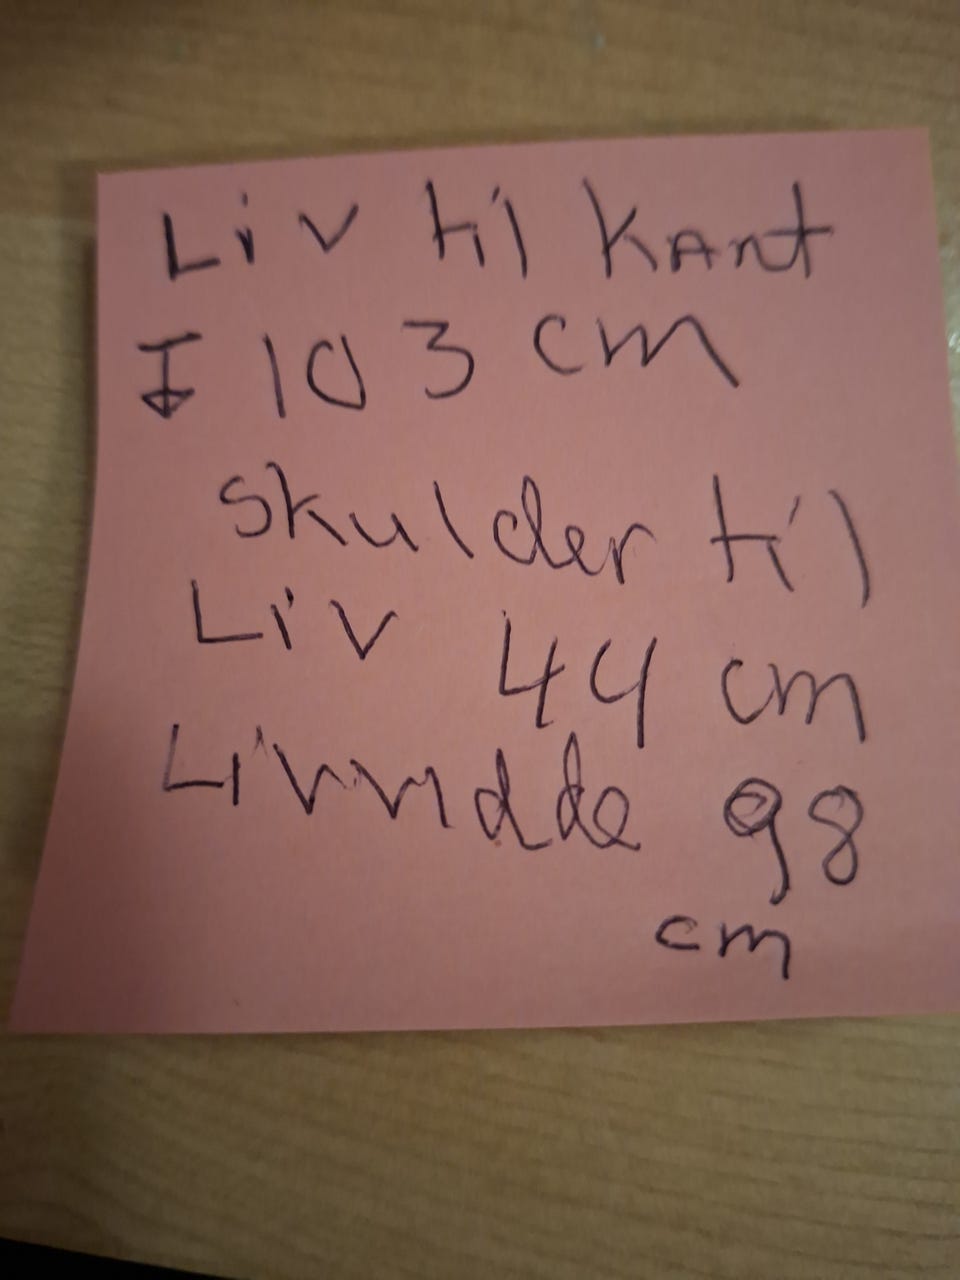 Liv til kant
103 cm
Skulder til
Liv 44 cm
Livvidde 98
cm